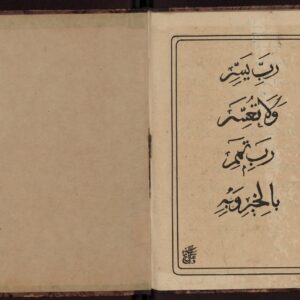 رَبِّ يَسِّرْ
وَلَا تُعَسِّرْ
رَبِّ تَمِّمْ
بِالْخَيْرِ وَبِهِ